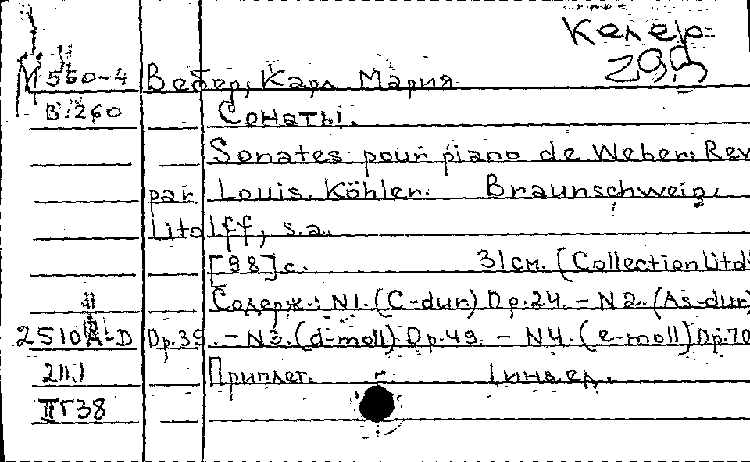 Келер
293
М 550-4 Вебер, Карл Мария
В-260 Сонаты.
Sonates pour piano de Weber. Rev
par Louis Köhler. Braunschweig,
Litolff, s.a.
[98] с. 31 см. (Collection Litol
Содерж.: N1. (C-dur) Op.24. – N2. (As-dur)
2510 -D Op.39. – N3. (d-moll) Op.49. – N4. (e-moll) Op.70
Приплет. 1 инв.ед.
2111
IIГ38